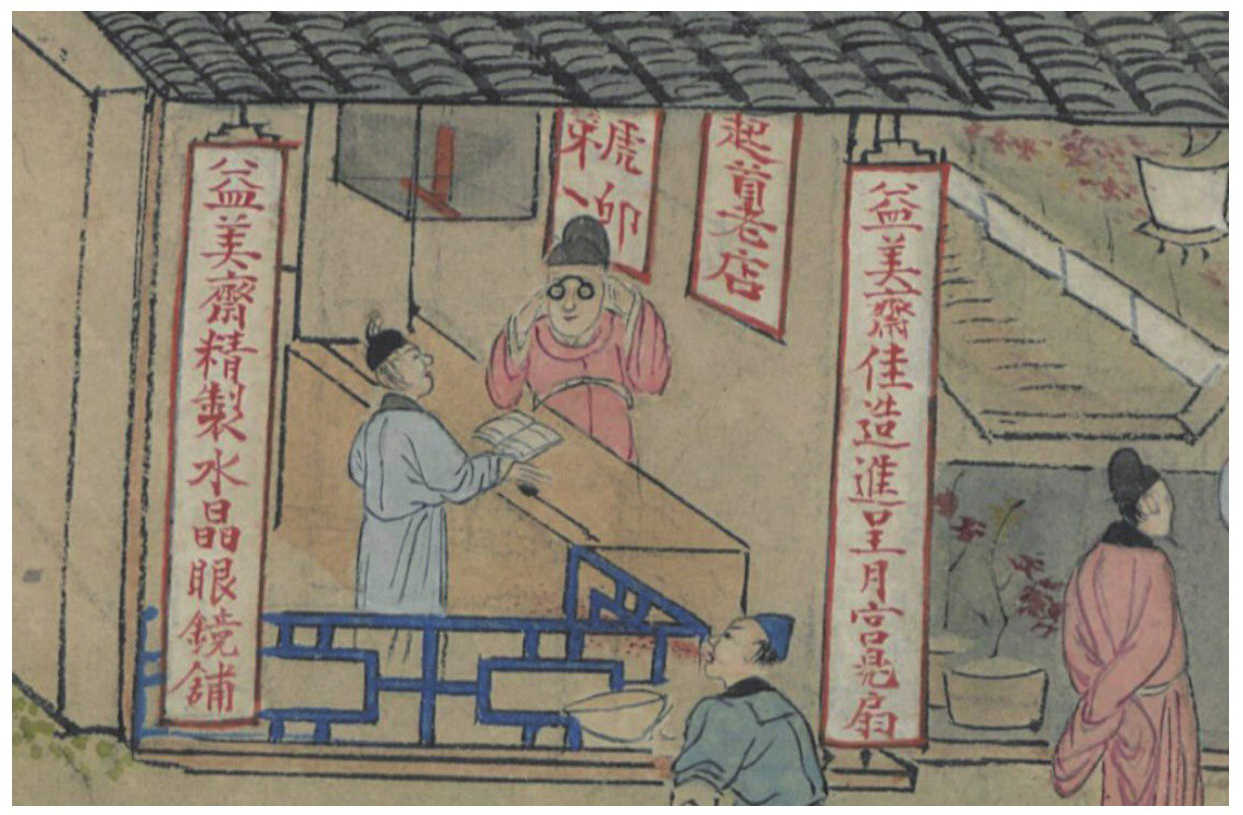 益美齋佳造進呈月宮亮扇
起首老店
益美齋精製水晶眼鏡舖